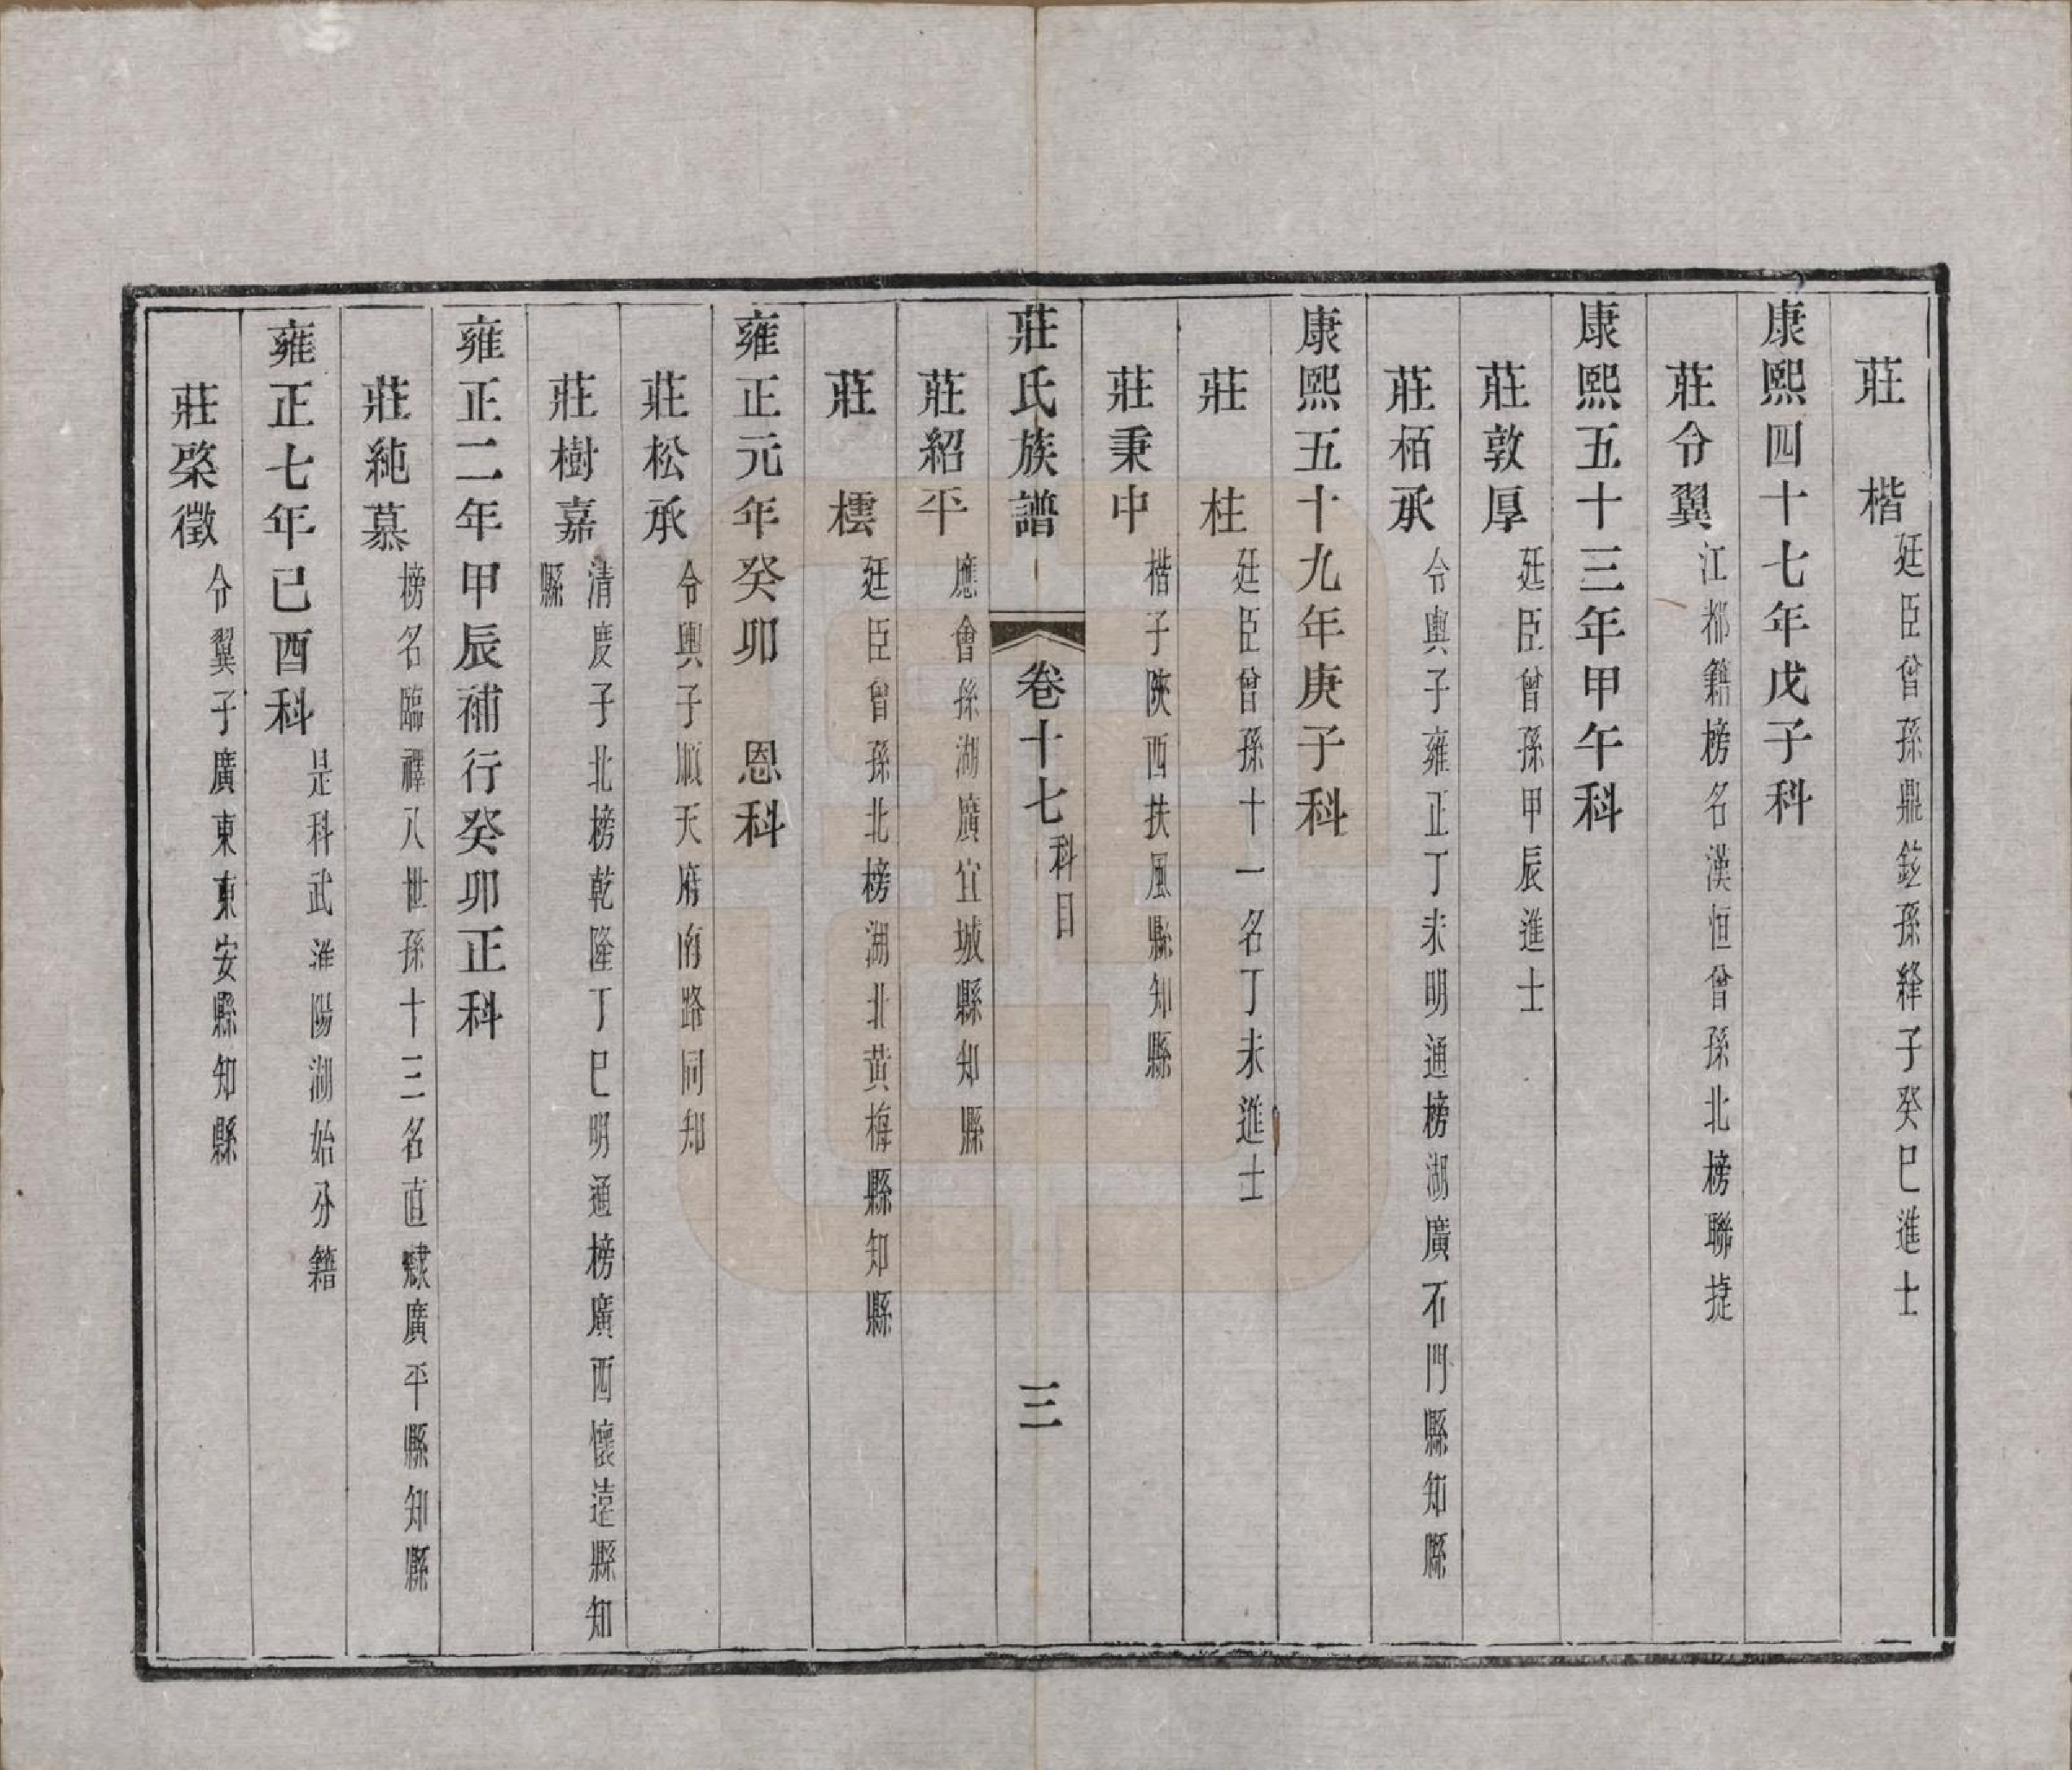 莊　楷　廷臣曾孫鼎鉉孫絳子癸巳進士
康熙四十七年戊子科
莊令翼　江都籍榜名漢恒曾孫北榜聯捷
康熙五十三年甲午科
莊敦厚　廷臣曾孫甲辰進士
莊栢承　令輿子雍正丁未明通榜湖廣石門縣知縣
康熙五十九年庚子科
莊　柱　廷臣曾孫十一名丁未進士
莊秉中　楷子陝西扶風縣知縣
莊氏族譜　卷十七　科目　三
莊紹平　應會孫湖廣宜城縣知縣
莊　橒　廷臣曾孫北榜湖北黃梅縣知縣
雍正元年癸卯　恩科
莊松承　令輿子順天府南路同知
莊樹嘉　清度子北榜乾隆丁巳明通榜廣西懷遠縣知
縣
雍正二年甲辰補行癸卯正科
莊純慕　榜名臨禪八世孫十三名直隸廣平縣知縣
雍正七年己酉科　是科武進陽湖始分籍
莊棨徵　令翼子廣東東安縣知縣